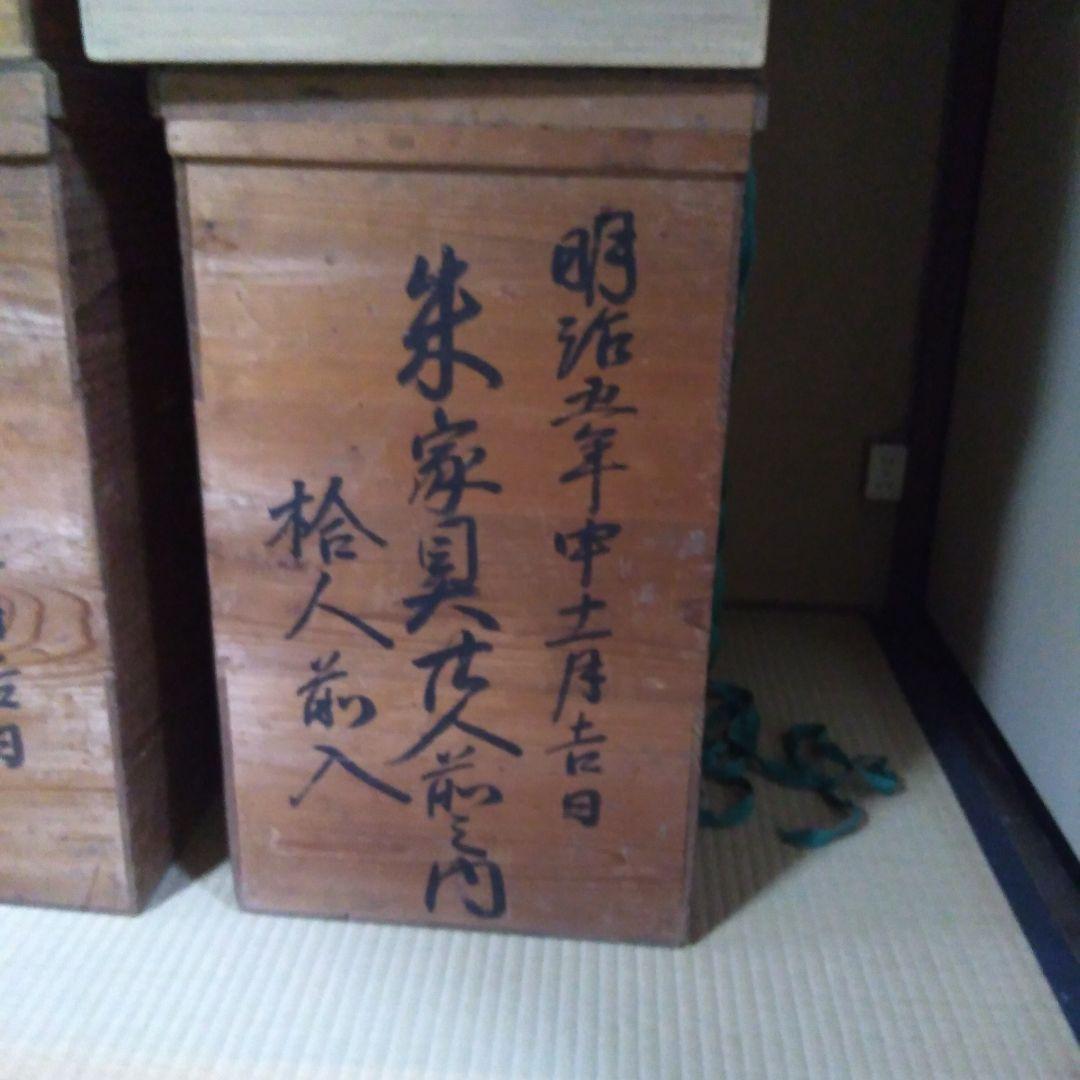 明治五年申十一月吉日
朱家具廿人前之内
拾人前入
吉日